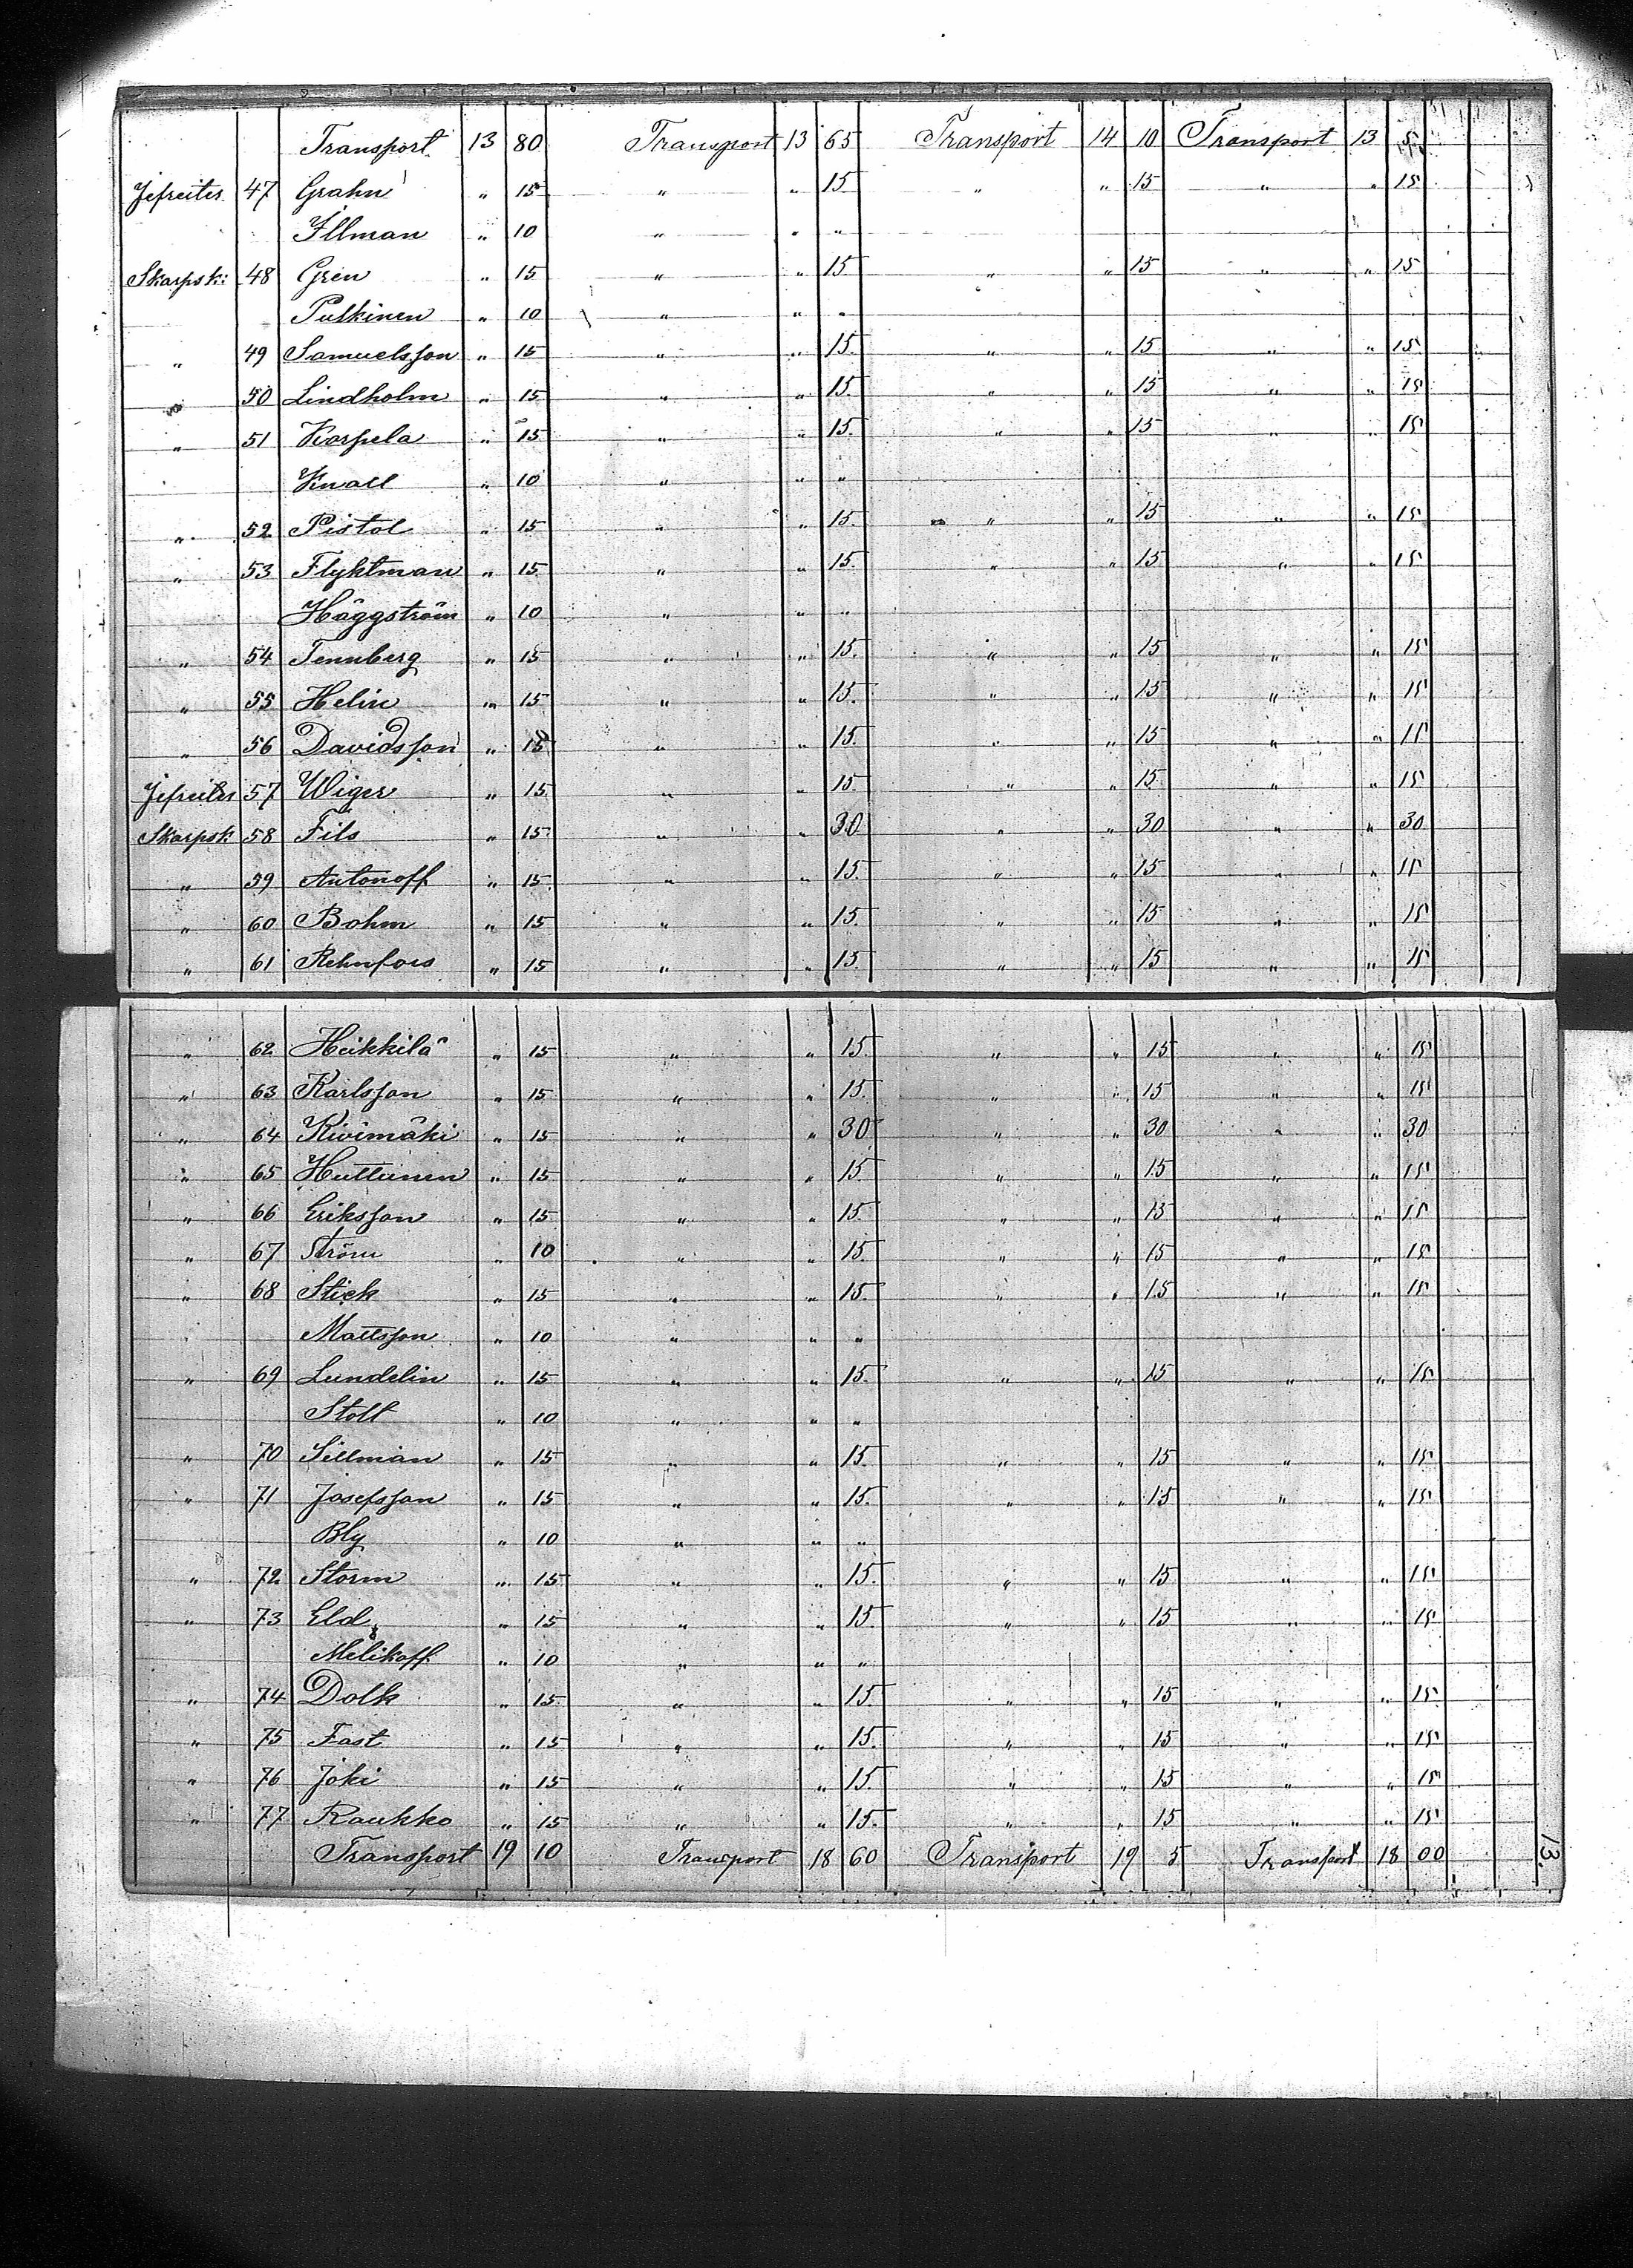 Transport 13 80 Transport 13 65 Transport 14 10 Transport 13 5
Jefreiter 47 Grahn " 15 " " 15 " " 15 " " 15
Illman " 10 " " "
Skarpsk: 48 Gren " 15 " " 15 " " 15 " " 15
Pulkinen " 10 " " "
" 49 Samuelsson " 15 " " 15. " " 15 " " 15
" 50 Lindholm " 15 " " 15. " " 15 " " 15
" 51 Korpela " 15 " " 15. " " 15 " " 15
Knall " 10 " " "
" 52 Pistol " 15 " " 15. " " 15 " " 15
" 53 Flyktman " 15 " " 15. " " 15 " " 15
Häggström " 10 " " "
" 54 Tennberg " 15 " " 15. " " 15 " " 15
" 55 Helin " 15 " " 15. " " 15 " " 15
" 56 Davidsson " 15 " " 15. " " 15 " " 15
Jefreiter 57 Wiger " 15 " " 15. " " 15 " " 15
Skarpsk 58 Fils " 15 " " 30 " " 30 " " 30
" 59 Antonoff " 15 " " 15. " " 15 " " 15
" 60 Bohm " 15 " " 15. " " 15 " " 15
" 61 Rehnfors " 15 " " 15. " " 15 " " 15
" 62 Heikkilä " 15 " " 15. " " 15 " " 15
" 63 Karlsson " 15 " " 15. " " 15 " " 15
" 64 Kivimäki " 15 " " 30 " " 30 " " 30
" 65 Huttunen " 15 " " 15. " " 15 " " 15
" 66 Eriksson " 15 " " 15. " " 15 " " 15
" 67 Ström " 10 " " 15. " " 15 " " 15
" 68 Stick " 15 " " 15. " " 15 " " 15
Mattsson " 10 " " "
" 69 Lundelin " 15 " " 15. " " 15 " " 15
Stolt " 10 " " "
" 70 Sillman " 15 " " 15. " " 15 " " 15
" 71 Josefsson " 15 " " 15. " " 15 " " 15
Bly " 10 " " "
" 72 Storm " 15 " " 15. " " 15 " " 15
" 73 Eld " 15 " " 15 " " 15 " " 15
Melikoff " 10 " " "
" 74 Dolk " 15 " " 15. " " 15 " " 15
" 75 Fast " 15 " " 15. " " 15 " " 15
" 76 Joki " 15 " " 15. " " 15 " " 15
" 77 Raukko " 15 " " 15. " " 15 " " 15
Transport 19 10 Transport 18 60 Transport 19 5 Transport 18 00
13.